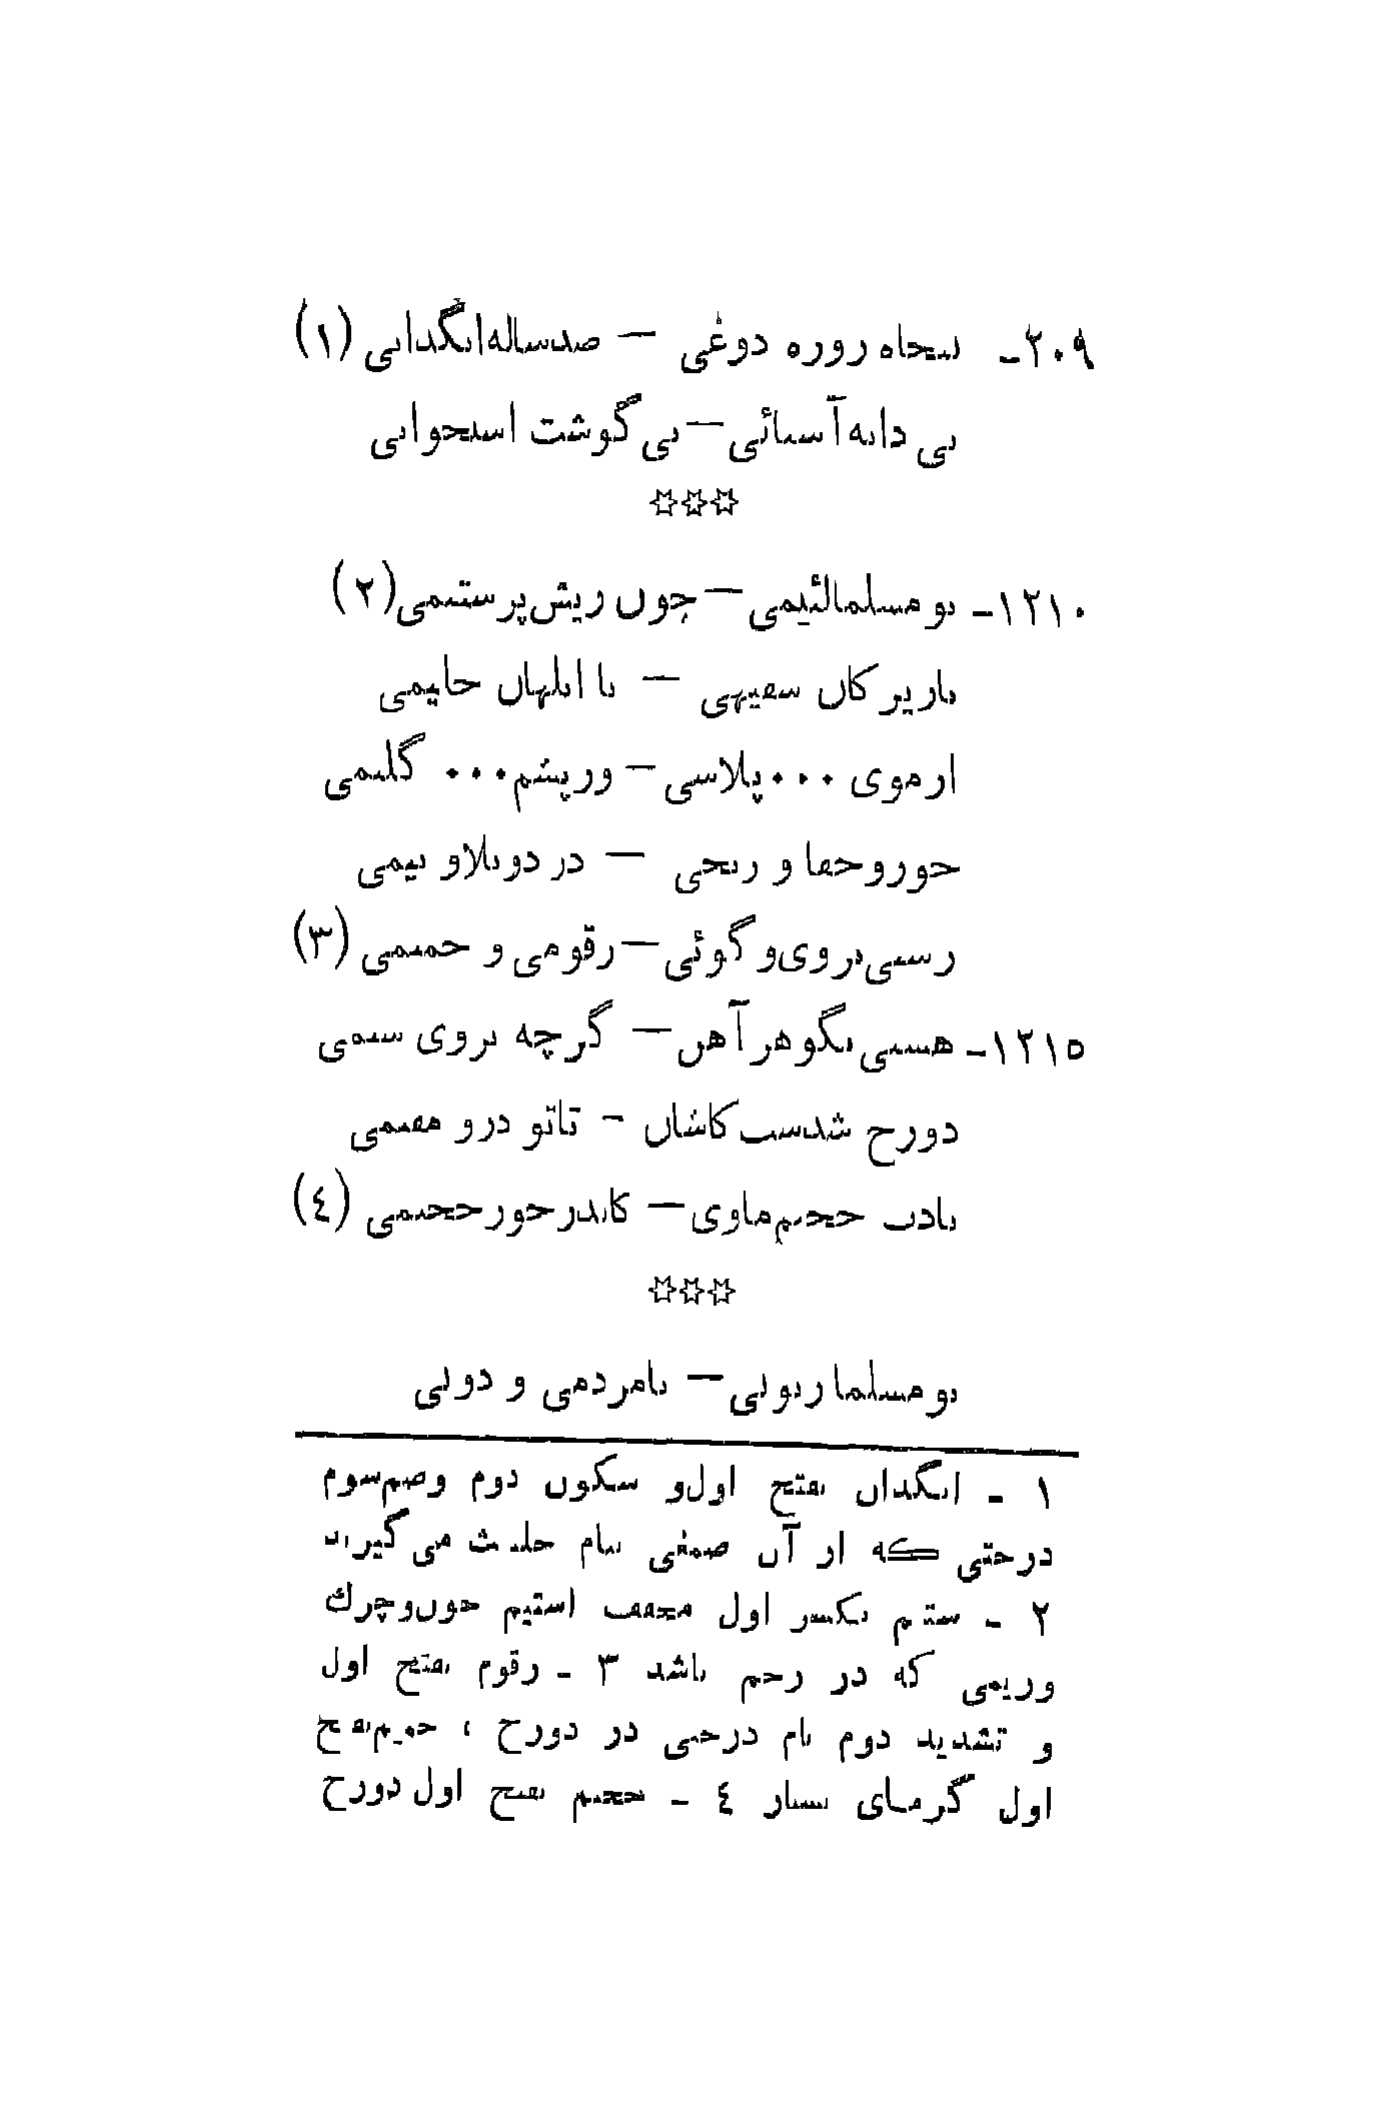 ۲۰۹ـ پنجاه روزه دوغی — صدساله‌انگدانی (۱)
بی دانه آسیائی — بی گوشت استخوانی
☆☆☆
۱۲۱۰ـ بو مسلمالئیمی — چون ریش پرستیمی (۲)
بازیرکان سفیهی — با ابلهان حلیمی
از موی ۰۰۰ پلاسی — وز پشم ۰۰۰ گلیمی
جور و جفا و رنجی — در دو بلا و بیمی
زشتی بروی و گوئی — زقومی و حمیمی (۳)
۱۲۱۵ـ هستی بگوهر آهن — گرچه بروی سیمی
دوزخ شدست کاشان - تا تو درو مقیمی
یادب جحیم ماوی — کاندر خور جحیمی (٤)
☆☆☆
بو مسلما زبونی — نامردمی و دونی
۱ ـ انگدان بفتح اول و سکون دوم و ضم سوم
درختی که از آن صمغی بنام حلتیث می گیرند
۲ ـ ستیم بکسر اول مخفف استیم خون و چرك
و ریمی که در زخم باشد ۳ ـ زقوم بفتح اول
و تشدید دوم نام درختی در دوزخ ، حمیم بفتح
اول گرمای بسیار ٤ ـ جحیم بفتح اول دوزخ